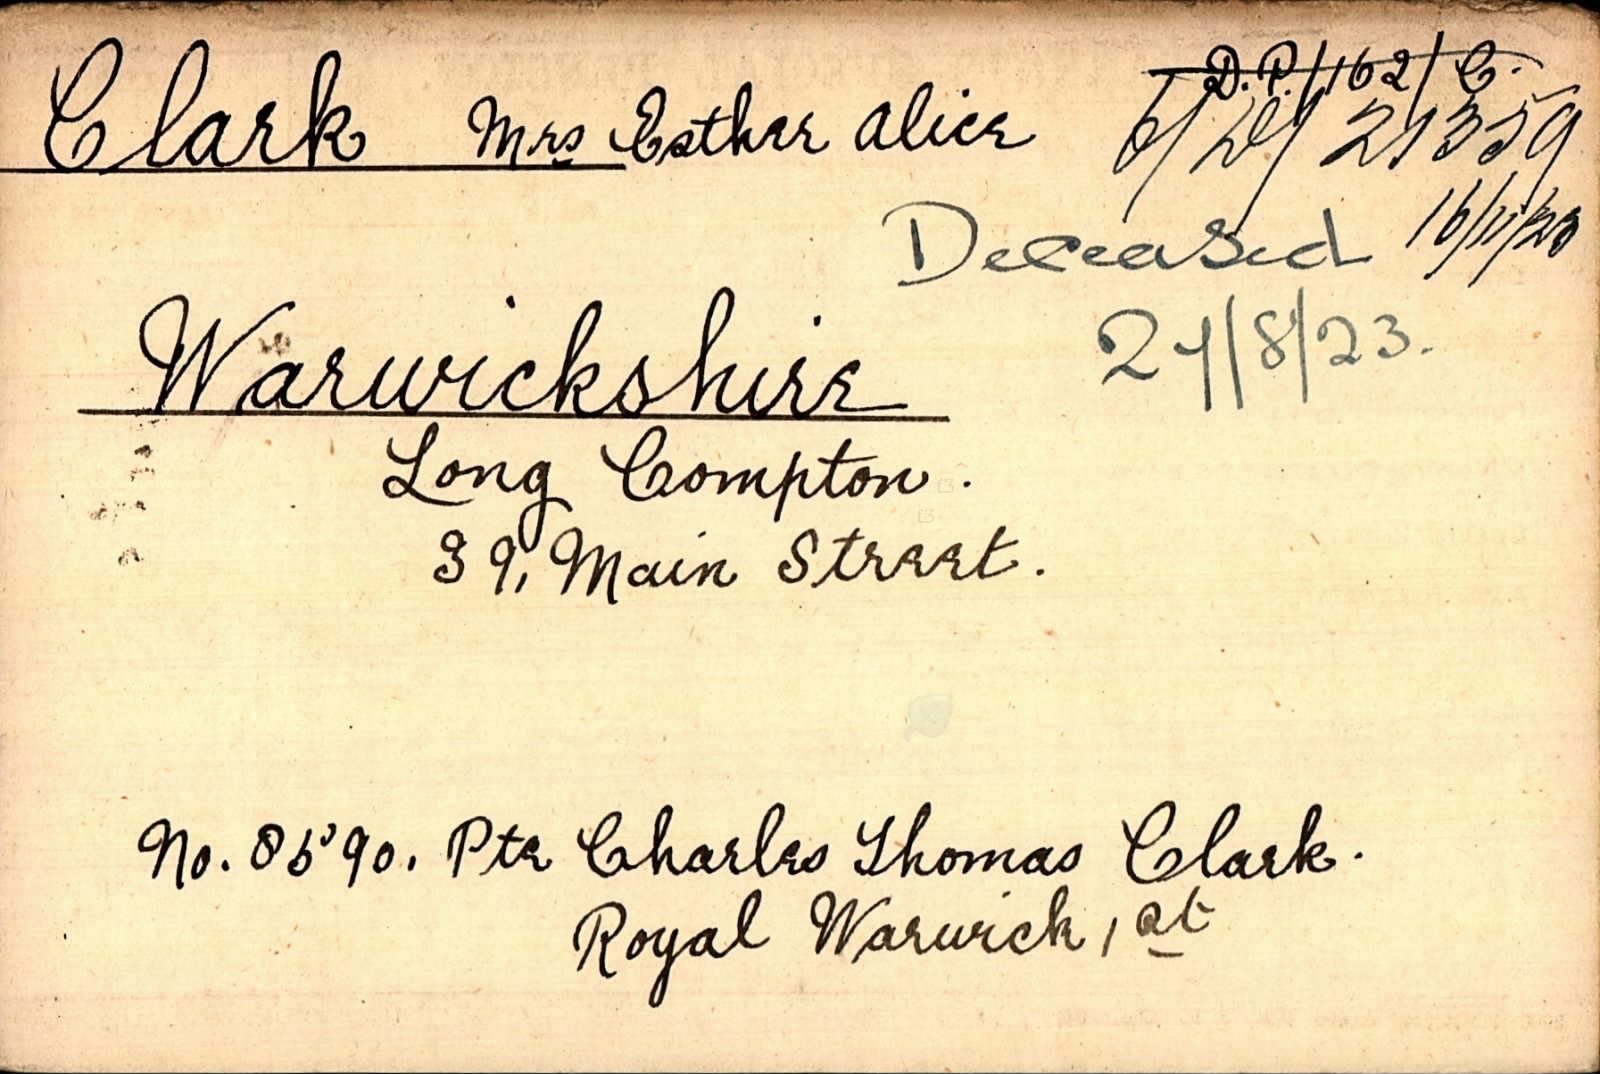 Clark Mrs Esther Alice
D.P./162/C.
6/D/21359
16/11/23
Deceased
27/8/23.
Warwickshire
Long Compton.
39, Main Street.
No. 8590. Pte Charles Thomas Clark.
Royal Warwick, 1st